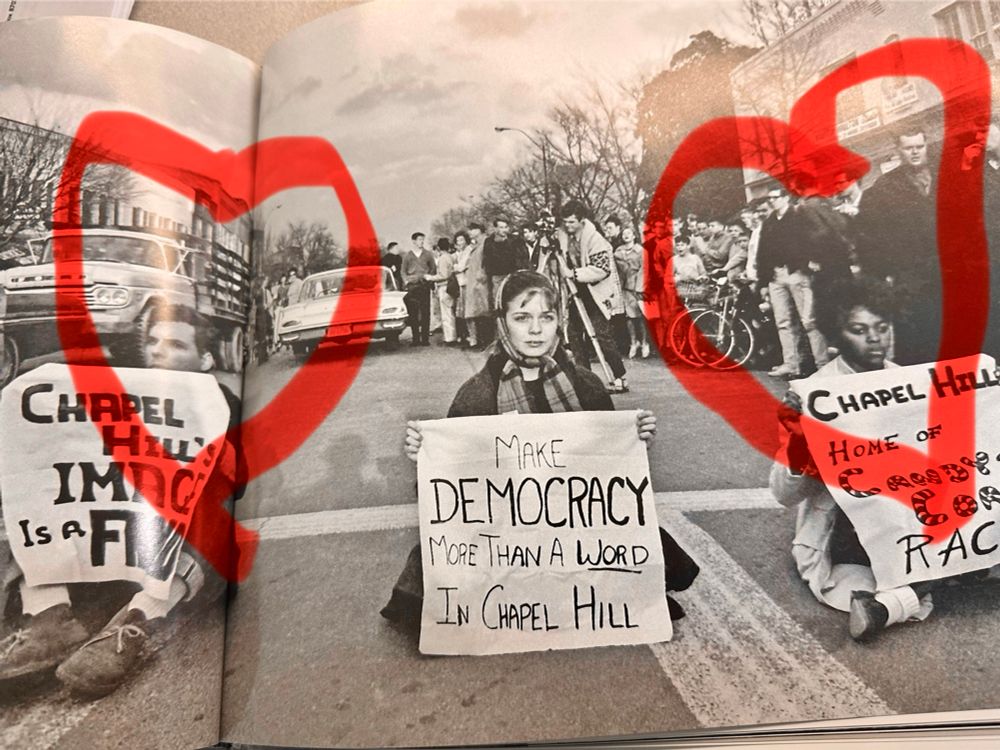 CHAPEL
HILL'S
IMAGE
IS A
MAKE
DEMOCRACY
MORE THAN A WORD
IN CHAPEL HILL
CHAPEL HILL
HOME OF
CANDY
RAC